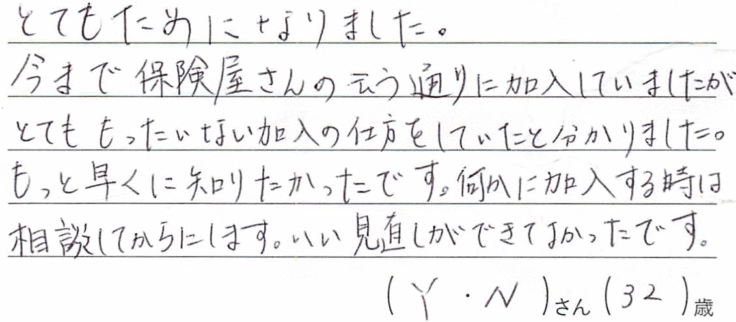 とてもためになりました。
今まで保険屋さんの云う通りに加入していましたが
とてももったいない加入の仕方をしていたと分かりました。
もっと早くに知りたかったです。何かに加入する時は
相談してからにします。いい見直しができてよかったです。
(Y・N)さん(32)歳